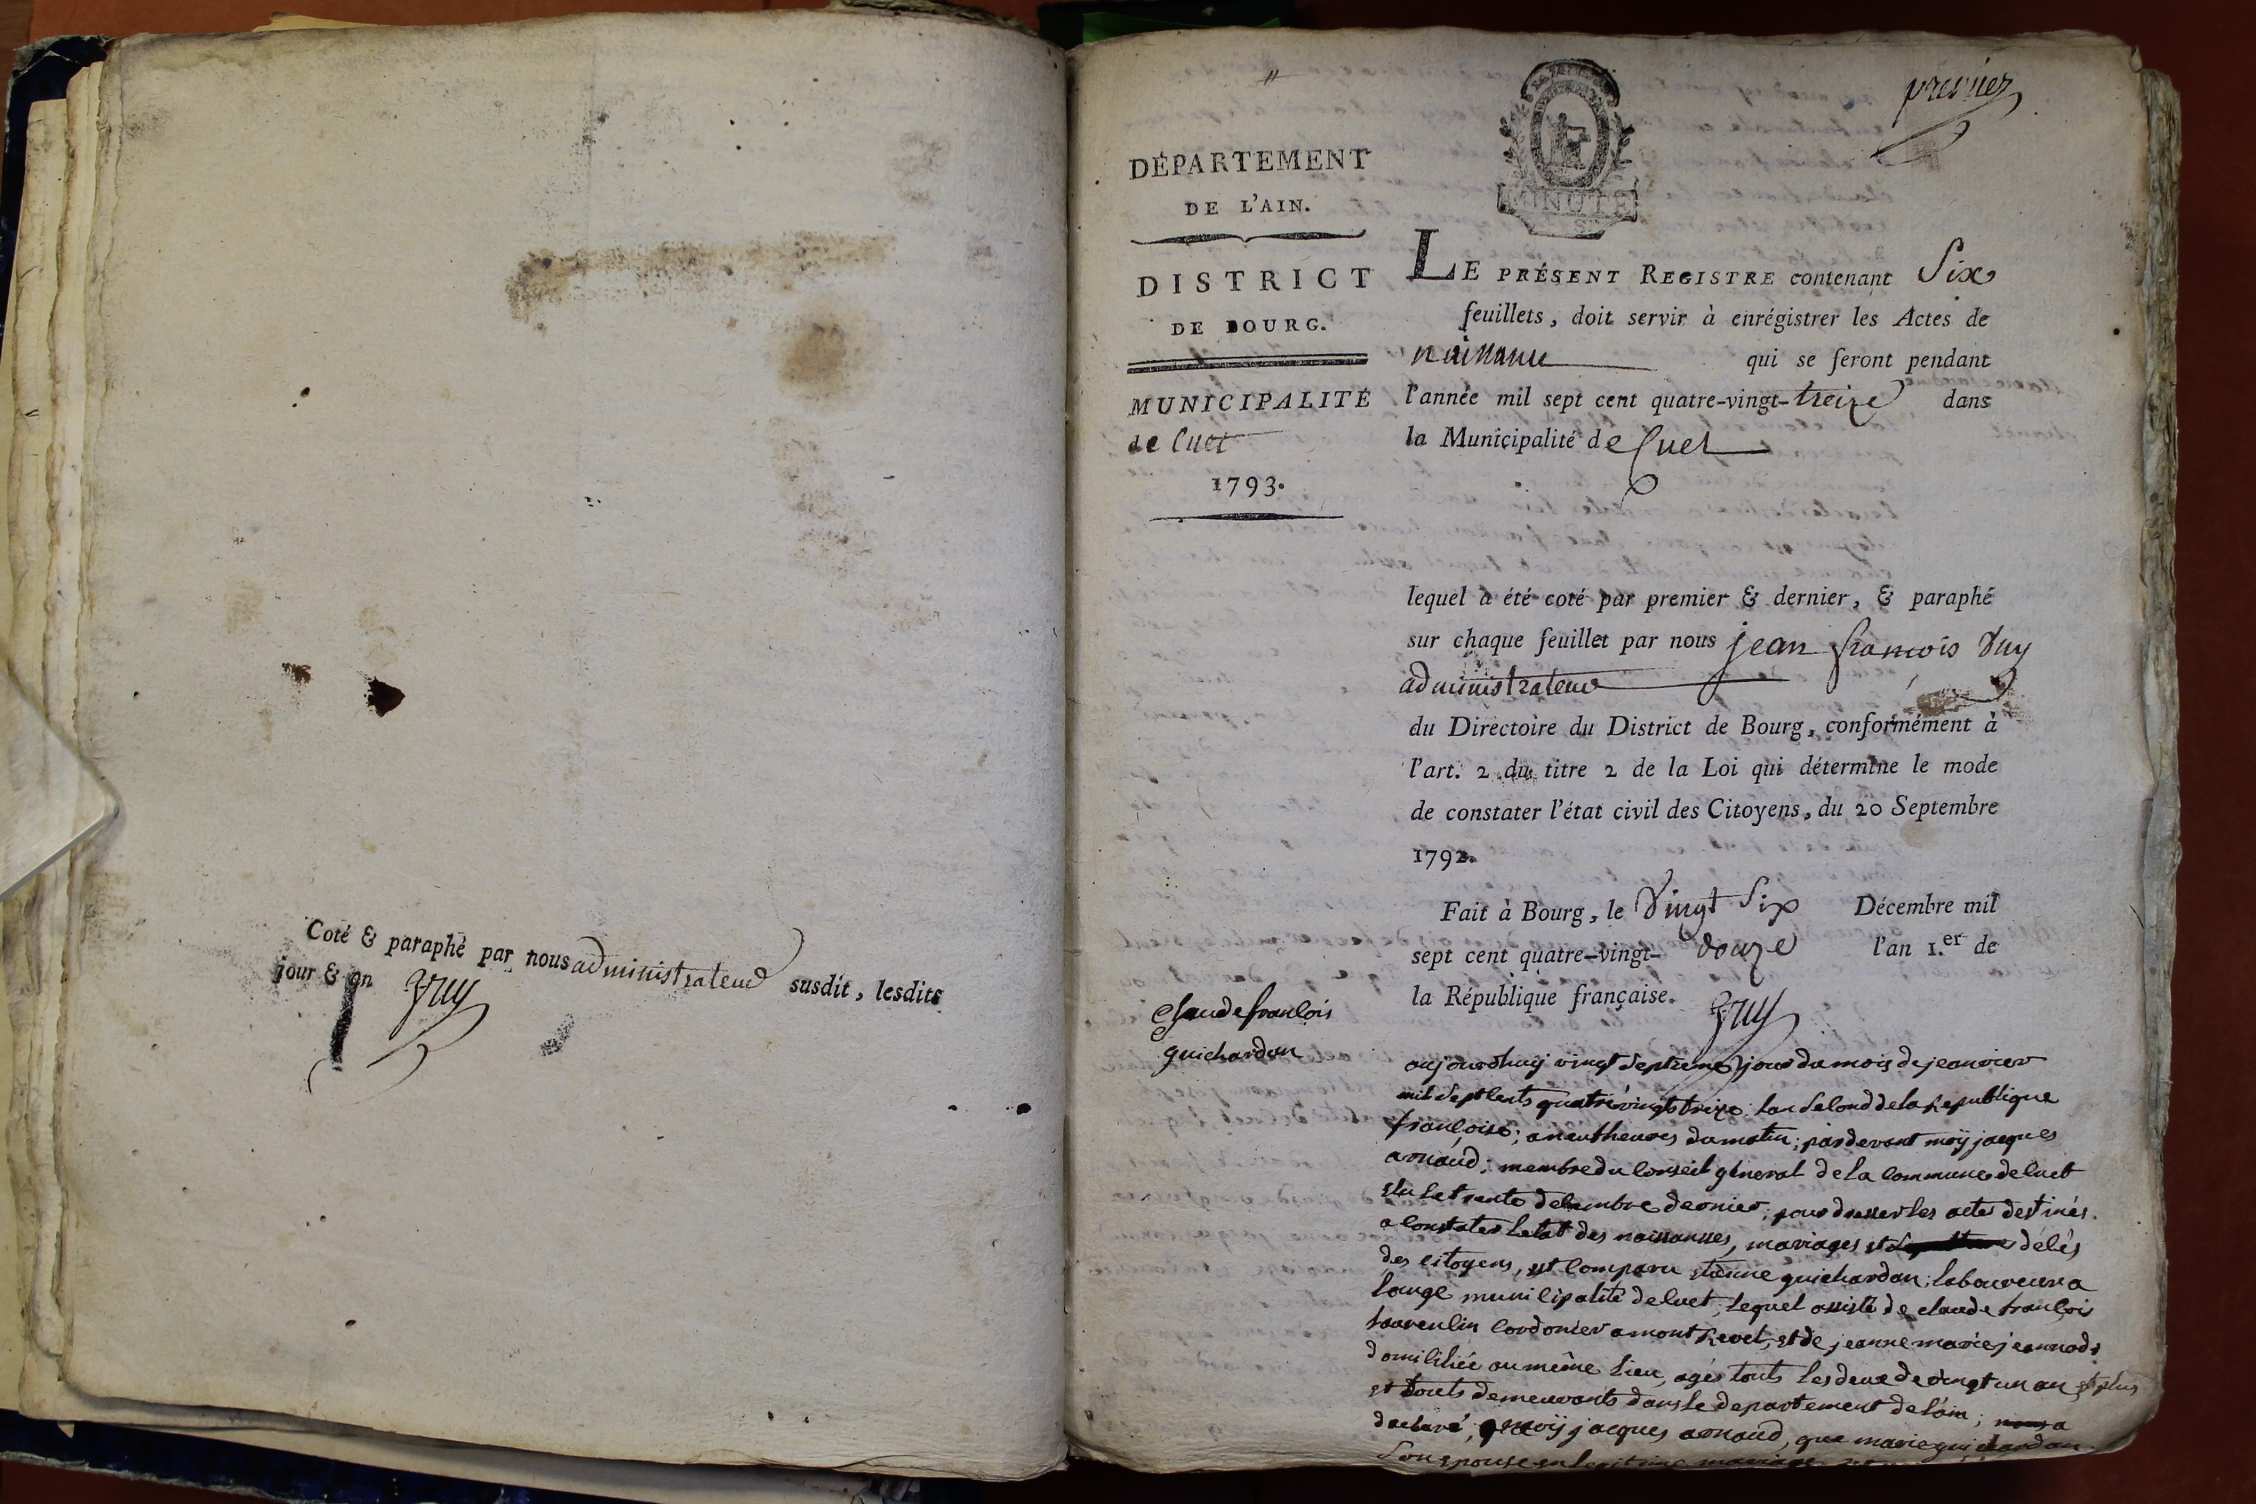 Coté & paraphé par nous administrateur susdit, lesdits
jour & an
Vuy
premier
MINUTE
DÉPARTEMENT
DE L'AIN.
DISTRICT
DE BOURG.
MUNICIPALITÉ
de Cuet
1793.
LE PRÉSENT REGISTRE contenant Six
feuillets, doit servir à enrégistrer les Actes de
naissance qui se feront pendant
l'année mil sept cent quatre-vingt-treize dans
la Municipalité de Cuet
lequel a été coté par premier & dernier, & paraphé
sur chaque feuillet par nous jean françois Vuy
administrateur
du Directoire du District de Bourg, conformément à
l'art. 2 du titre 2 de la Loi qui détermine le mode
de constater l'état civil des Citoyens, du 20 Septembre
1792.
Fait à Bourg, le Vingt Six Décembre mil
sept cent quatre-vingt-douze l'an 1.er de
la République française. Vuy
Claude francois
guichardan
aujourdhuy vingt septieme jour du mois de jeanvier
mil sept cents quatre vingts treize lan second de la Republique
françoise; a neuf heures du matin; pardevant moÿ jacques
arnaud; membre du Conseil géneral de la Commune de Cuet
élu le trente décembre dernier; pour dresser les actes destinés
a constater letat des naissances, mariages et décés
des citoyens, est comparu etienne guichardan; laboureur a
municipalité de Cuet, lequel assisté de claude françois
cordonier a mont Revel, et de jeanne marie jeannods
domiciliée au même lieu, agés touts les deux de vingt un an et plus
et touts demeurants dans le departement de lain; a
declaré, a moÿ jacques arnaud, que marie guichardan
son epouse en legitime mariage